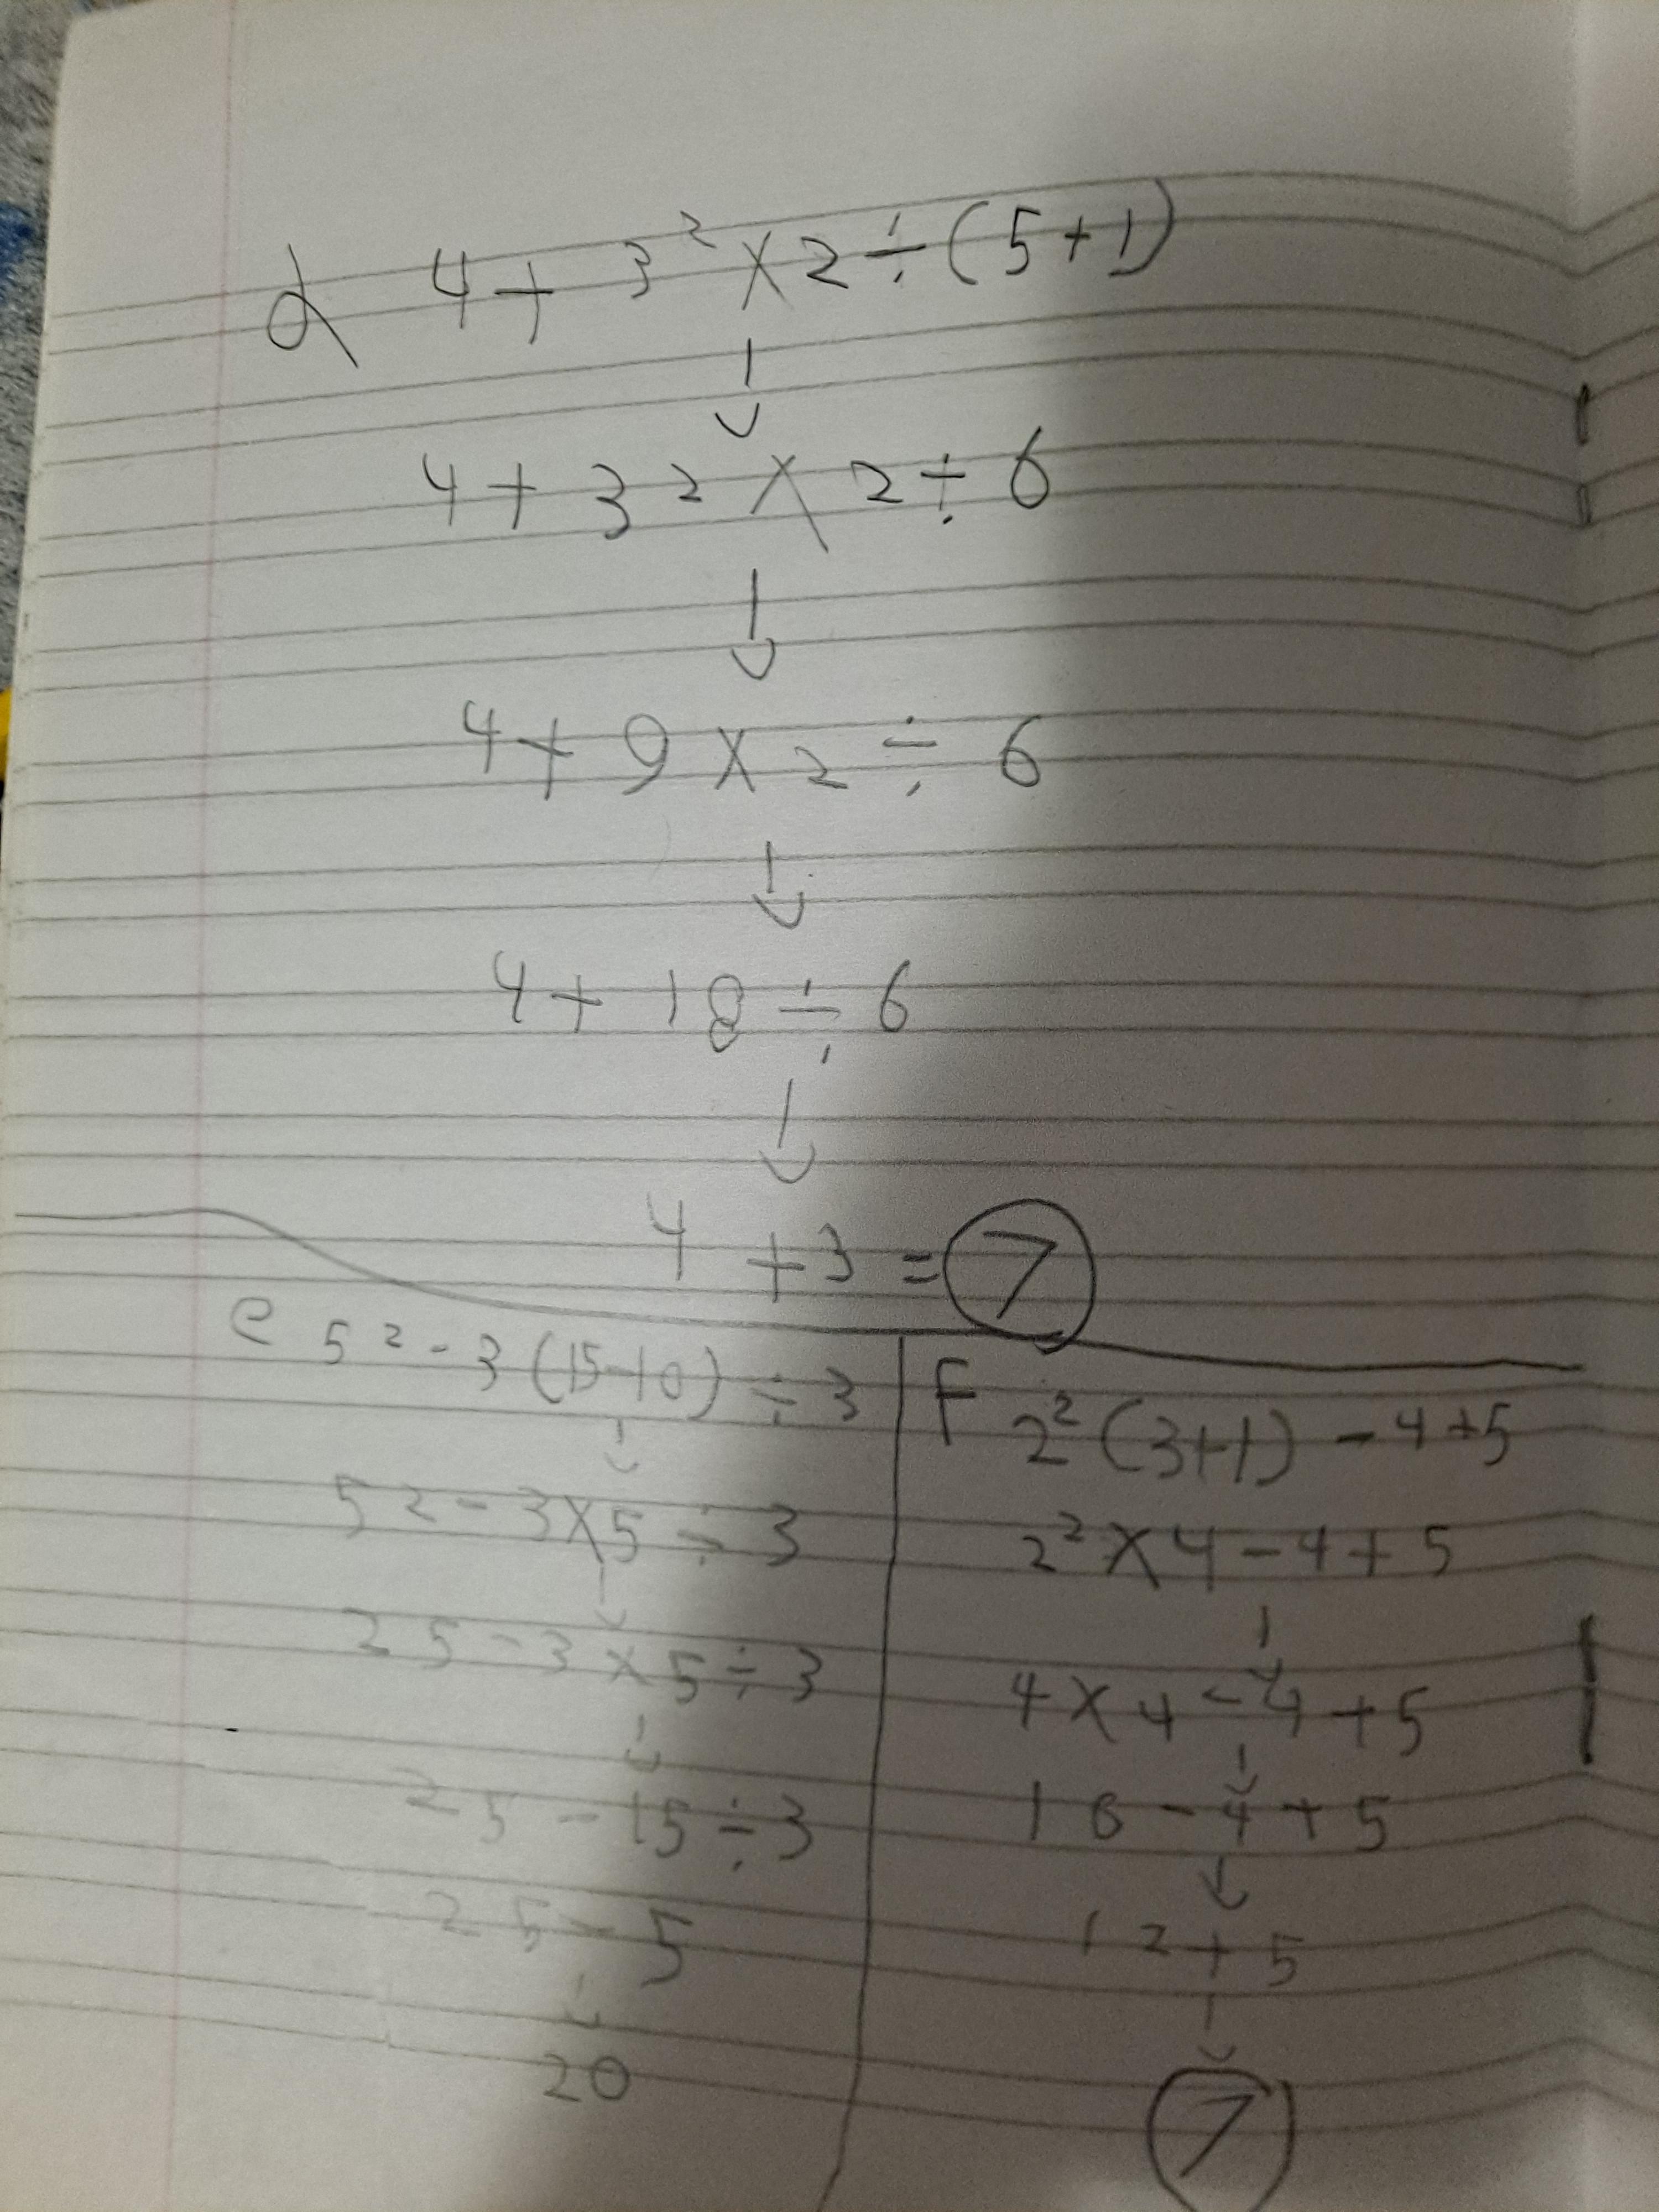 d 4 + 3² × 2 ÷ (5 + 1)
↓
4 + 3² × 2 ÷ 6
↓
4 + 9 × 2 ÷ 6
↓
4 + 18 ÷ 6
↓
4 + 3 = 7
e 5² - 3 (15 - 10) ÷ 3
↓
5² - 3 × 5 ÷ 3
↓
25 - 3 × 5 ÷ 3
↓
25 - 15 ÷ 3
25 - 5
↓
20
F 2² (3 + 1) - 4 + 5
2² × 4 - 4 + 5
↓
4 × 4 - 4 + 5
↓
16 - 4 + 5
↓
12 + 5
↓
7